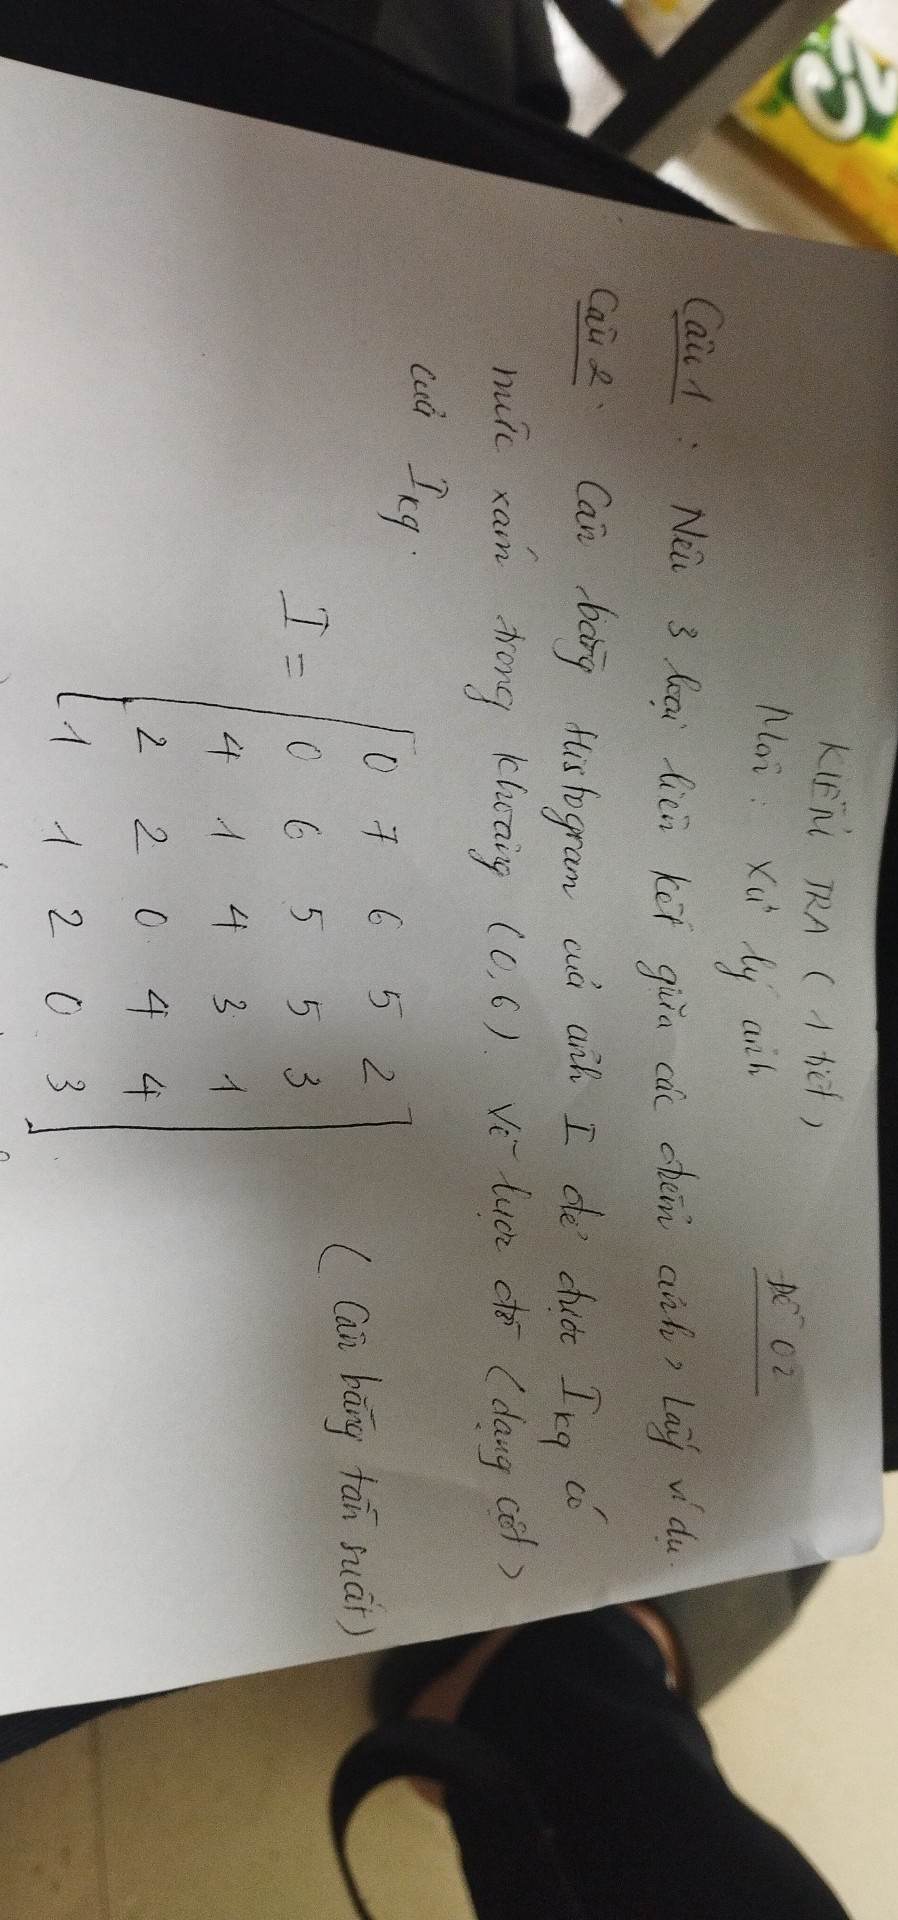 KIỂM TRA (1 tiết)
Môn: Xử lý ảnh
ĐỀ 02
Câu 1: Nêu 3 loại liên kết giữa các điểm ảnh, Lấy ví dụ.
Câu 2. Cân bằng Histogram của ảnh I để được Ikq có
mức xám trong khoảng (0,6). Vẽ lược đồ (dạng cột)
của Ikq.
0 7 6 5 2
(Cân bằng tần suất)
I = 0 6 5 5 3
4 1 4 3 1
2 2 0 4 4
1 1 2 0 3